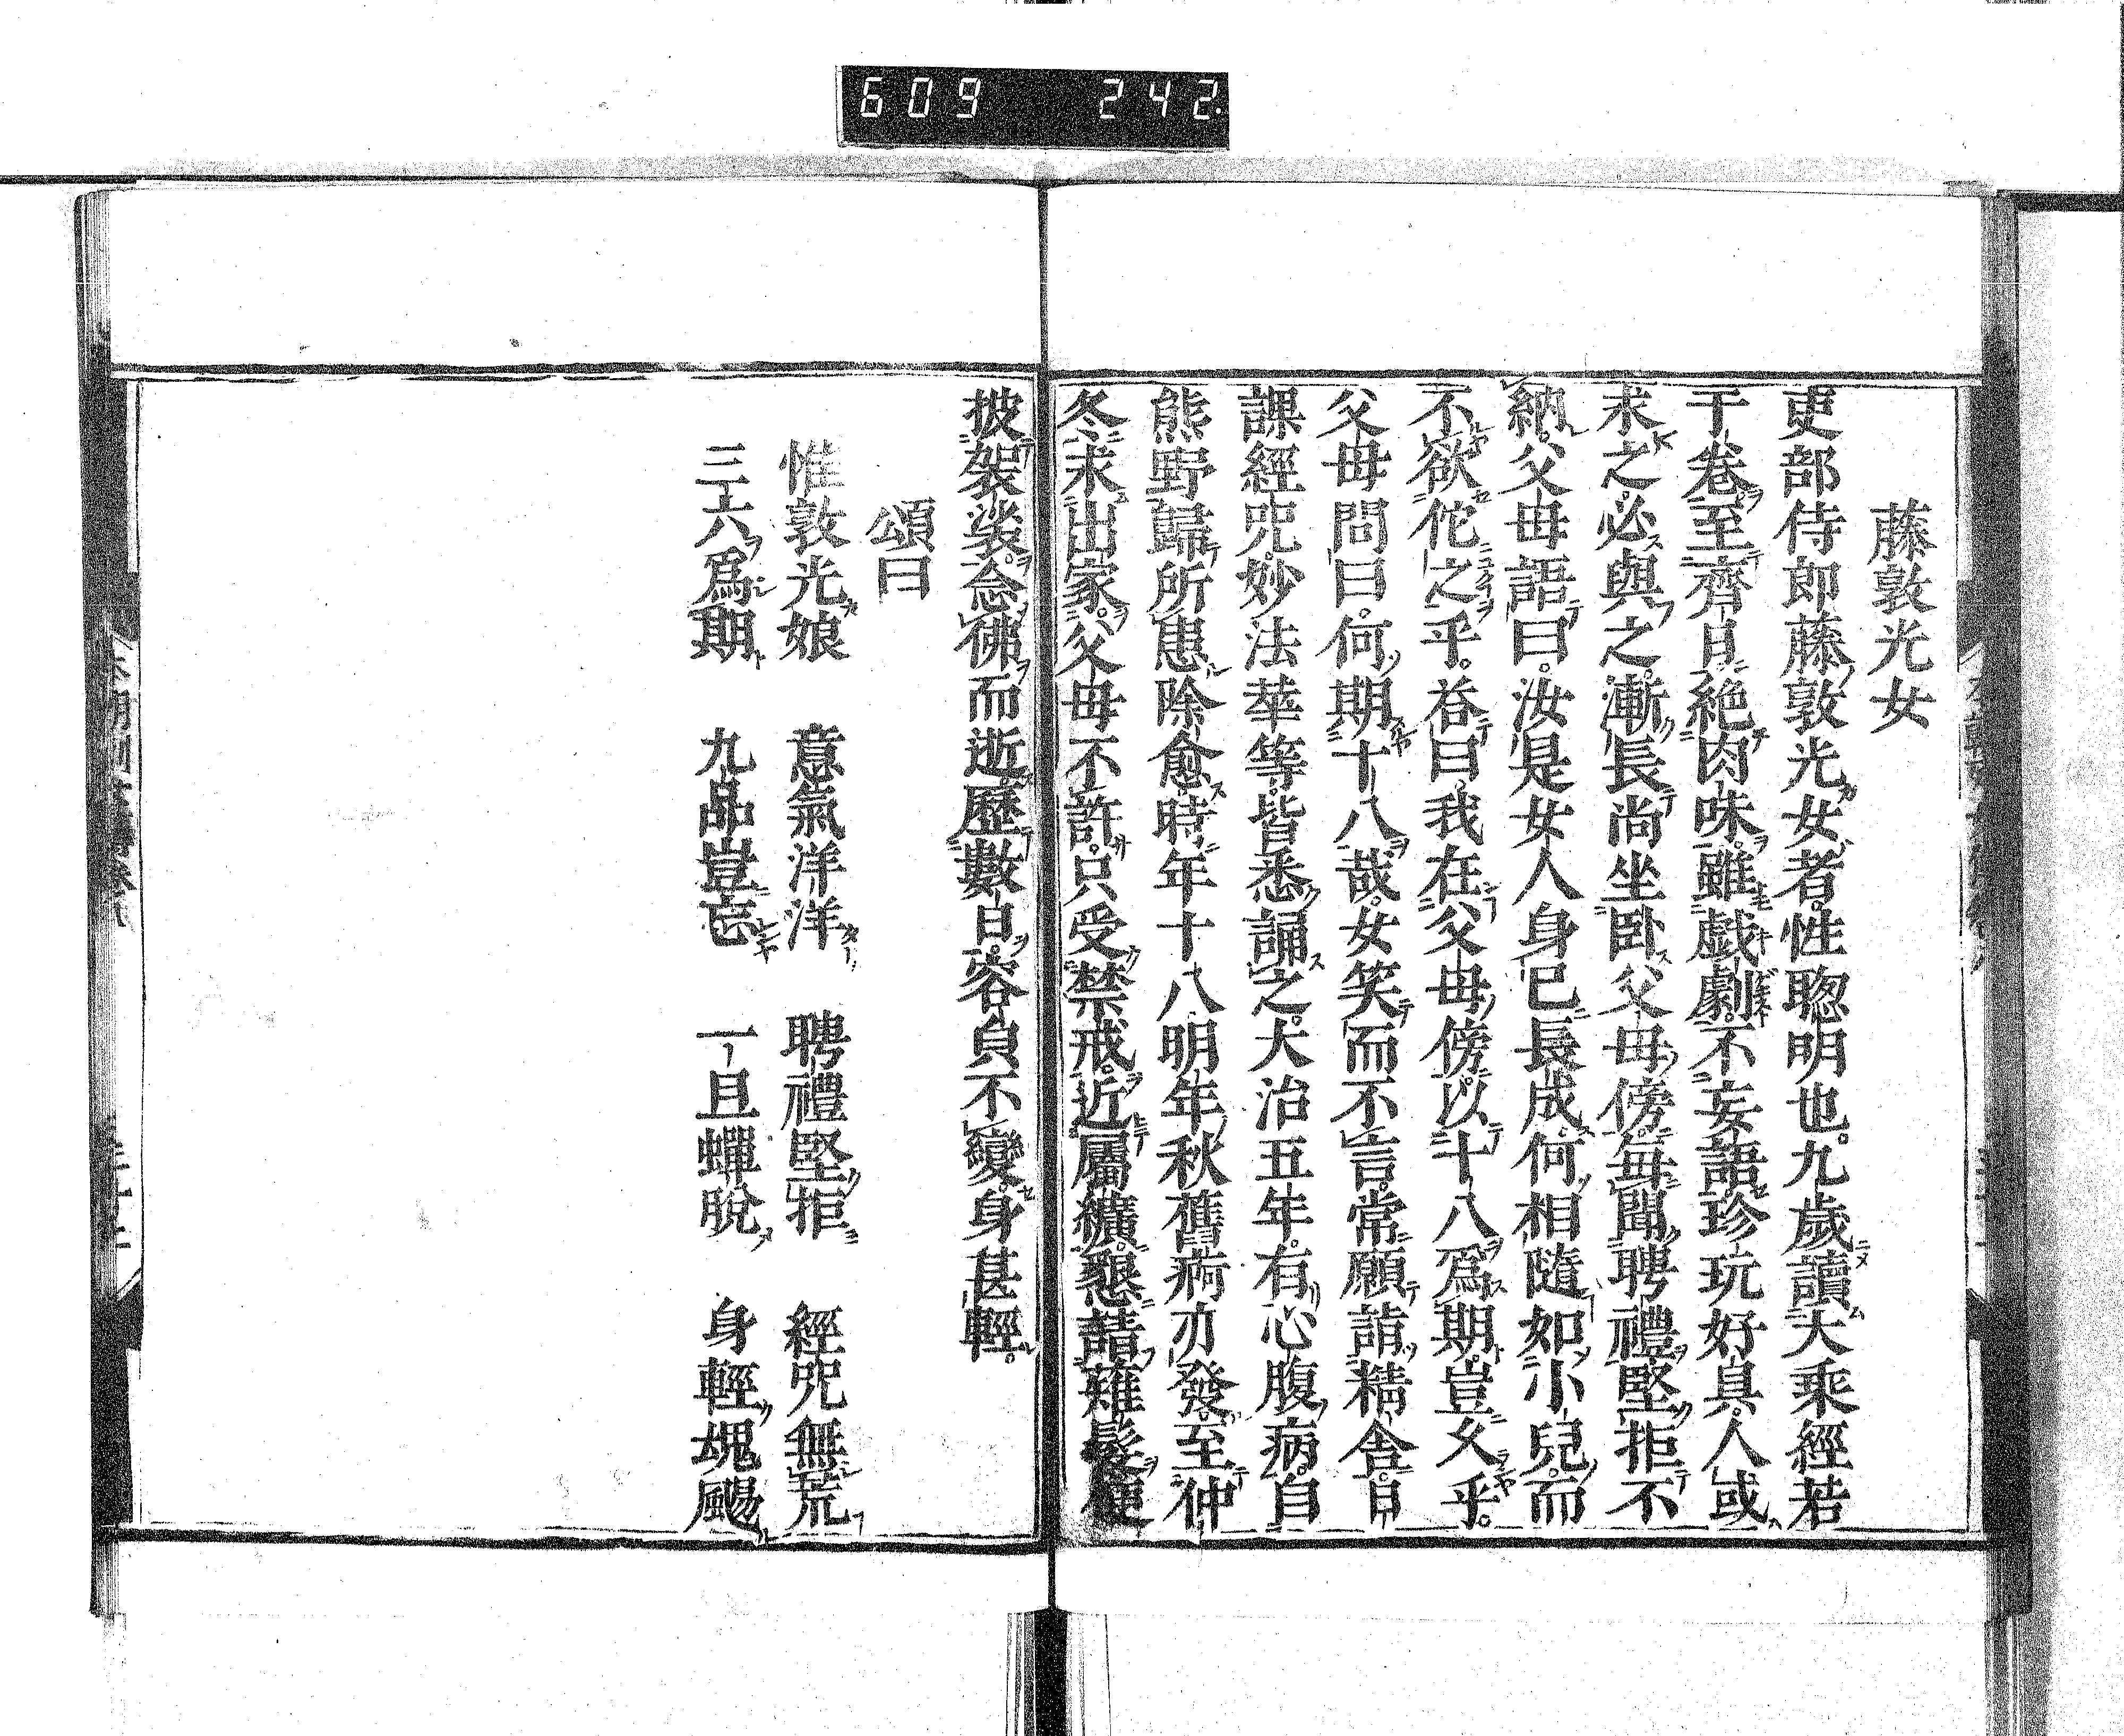 609 242
藤敦光女
吏部侍郎藤敦光女者性聰明也九歳讀大乘經若
干卷至齊日絶肉味雖戯劇不妄語珍玩好具人或
求之必與之漸長尚坐臥父母傍毎聞聘禮堅拒不
納父母語曰汝是女人身已長成何相隨如小兒而
不欲佗之乎答曰我在父母傍以十八爲期豈久乎
父母問曰何期十八哉女笑而不言常願詣精舎日
課經咒妙法華等皆悉誦之大治五年有心腹病自
熊野歸所患除愈時年十八明年秋舊病亦發至仲
冬求出家父母不許只受禁戒近屬纊懇請薙髮便
披袈裟念佛而逝歷數日容皃不變身甚輕
頌曰
惟敦光娘 意氣洋洋 聘禮堅拒 經咒無荒
三六爲期 九品豈忘 一旦蟬脫 身輕塊颺